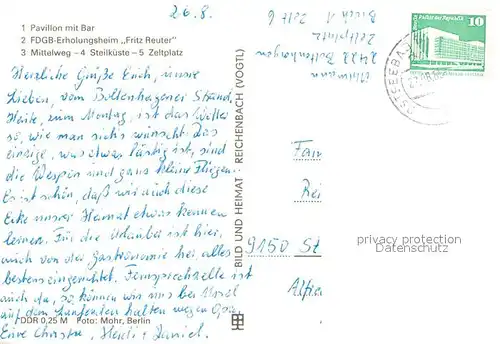 26.8.
1 Pavillon mit Bar
2 FDGB-Erholungsheim „Fritz Reuter"
3 Mittelweg - 4 Steilküste - 5 Zeltplatz
Herzliche Grüße Euch, unsre
Lieben, vom Boltenhagener Strand.
Heute, zum Montag, ist das Wetter
so, wie man sich's wünscht. Das
einzige, was etwas lästig ist, sind
die Wespen und ganz kleine Fliegen.
Es ist schön, daß wir auch diese
Ecke unsrer Heimat etwas kennen
lernen. Für die Urlauber ist hier,
auch von der Gastronomie her, alles
bestens eingerichtet. Fernsprechzelle ist
auch da, so können wir uns bei Ursel
auf dem Laufenden halten wegen Opa.
Eure Christa, Heidi + Daniel.
DDR 0,25 M Foto: Mohr, Berlin
BILD UND HEIMAT REICHENBACH (VOGTL)
2422 Boltenhagen
Zeltplatz
Block 1 Zelt 6
Palast der Republik
10
DDR
OSTSEEBAD
Fam
Rei
9150 St
Alfre
privacy protection